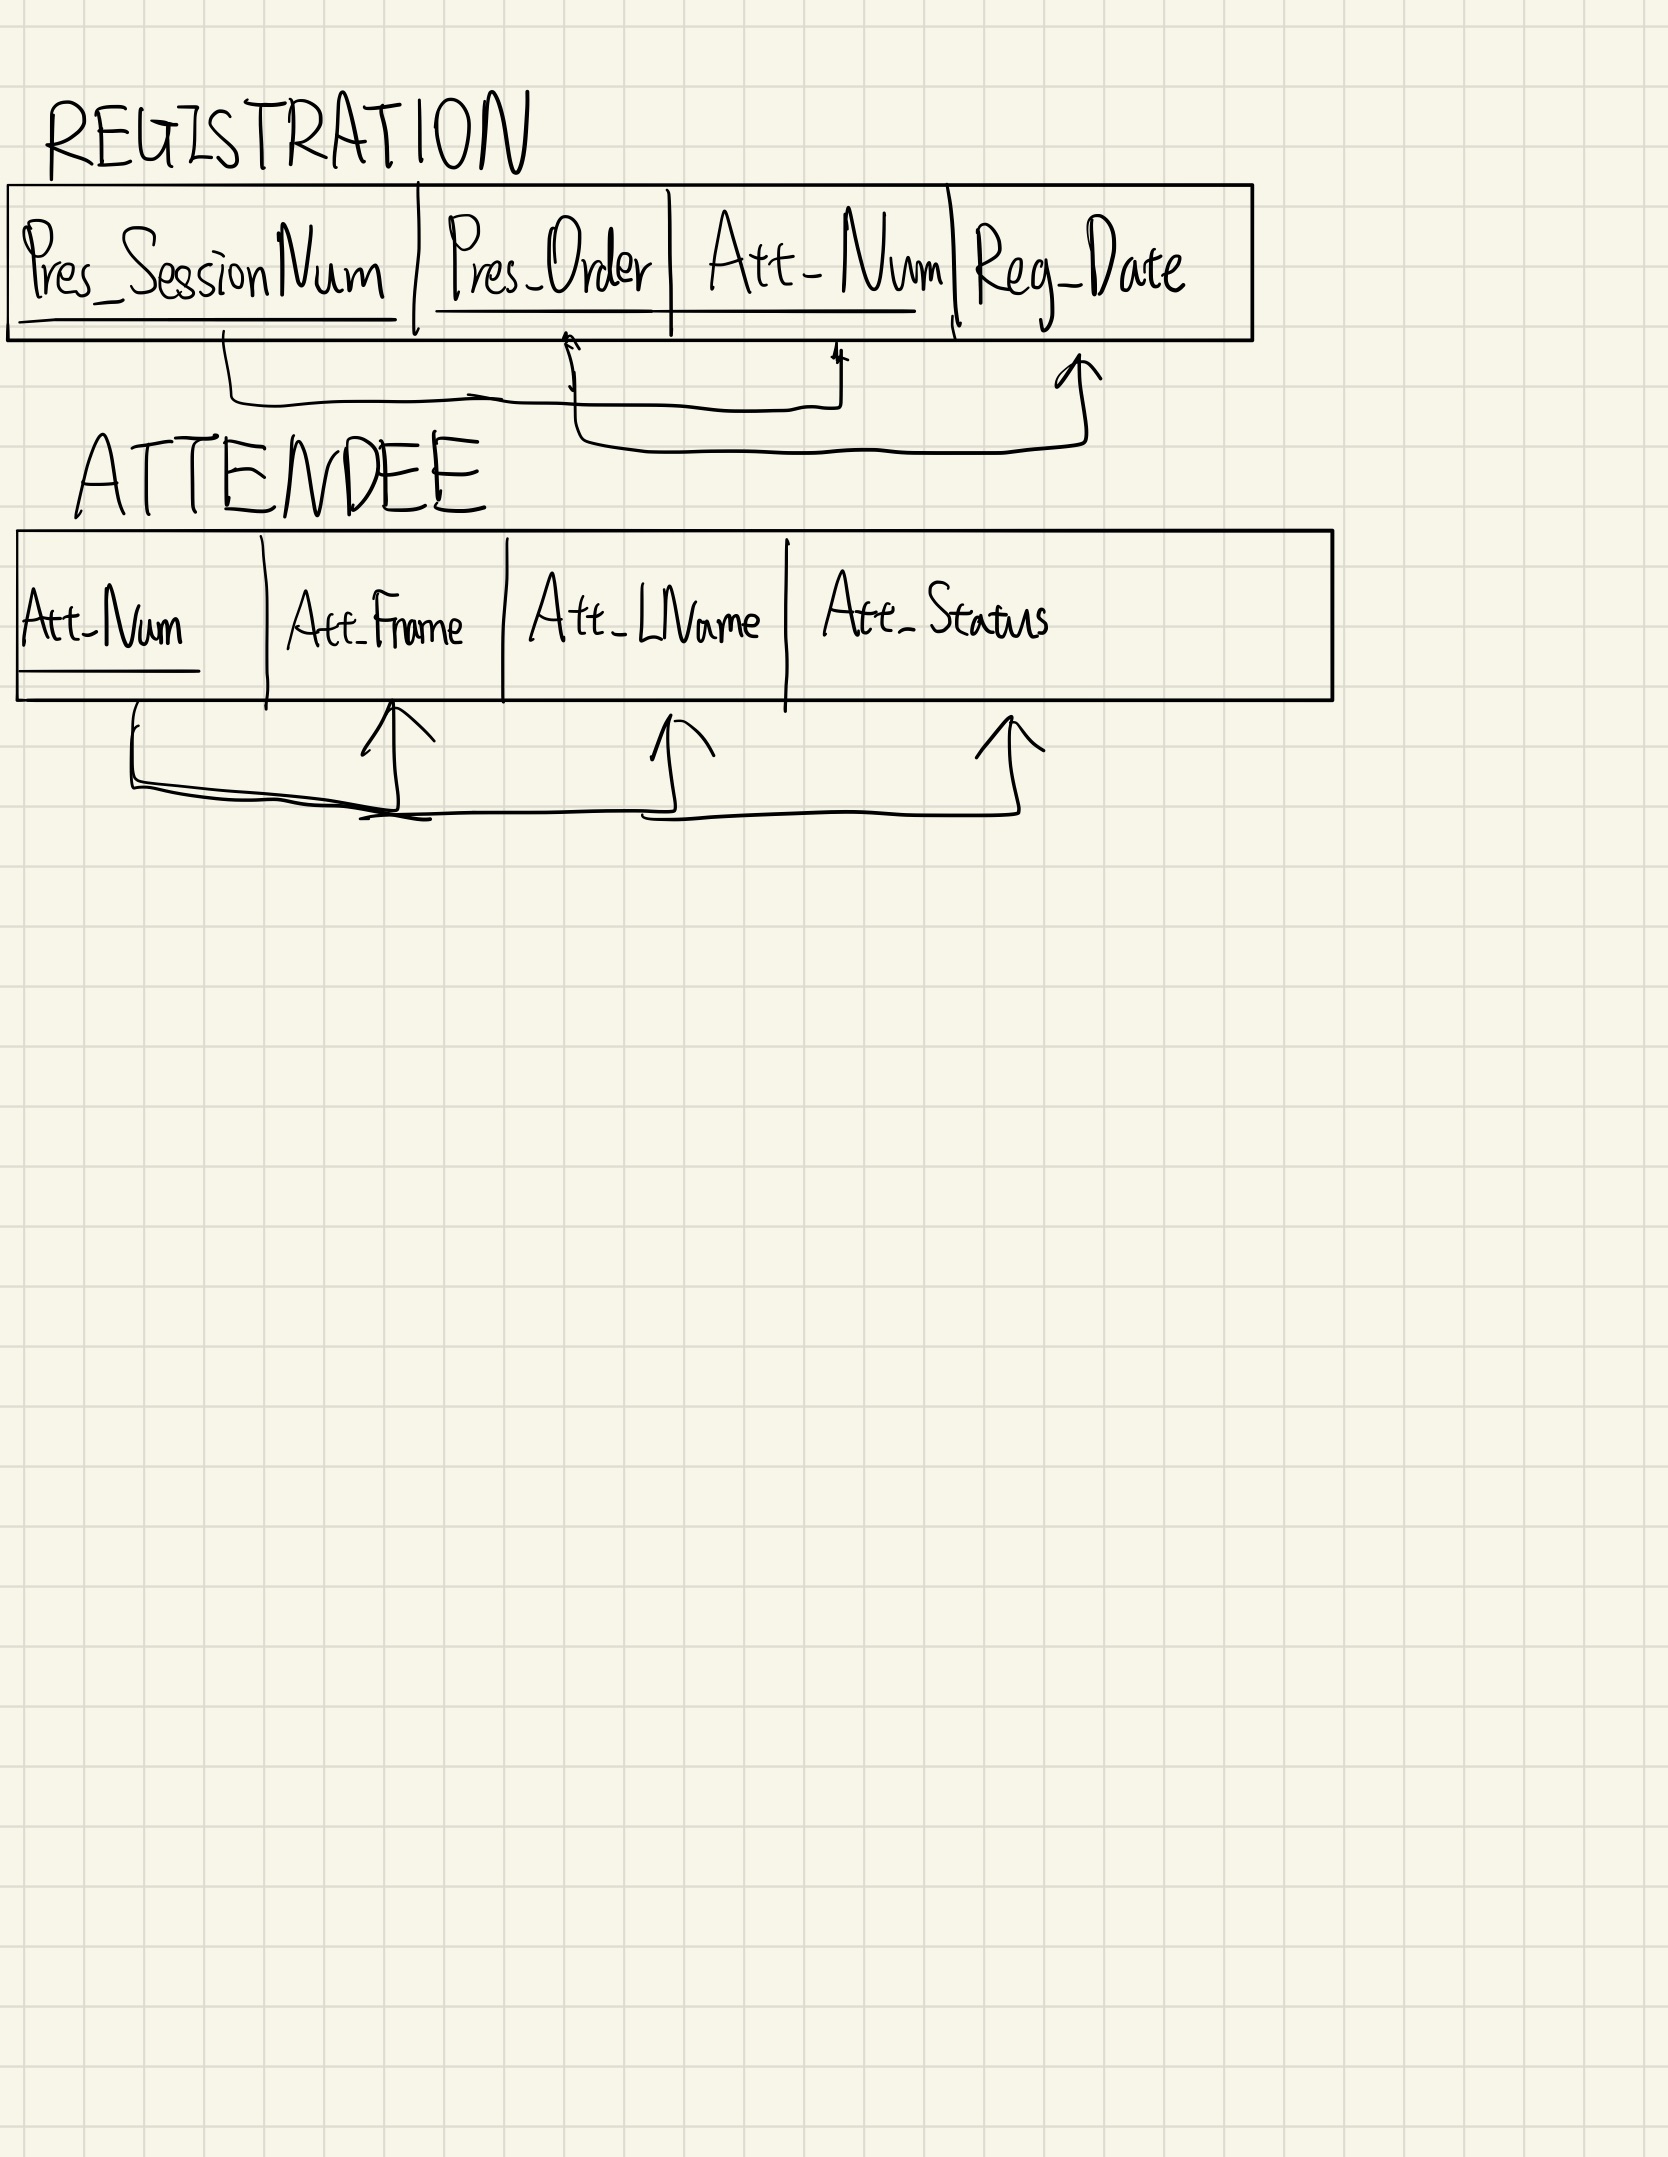 REGISTRATION
Pres_SessionNum Pres_Order Att_Num Reg_Date
ATTENDEE
Att_Num Att_Fname Att_LName Att_Status